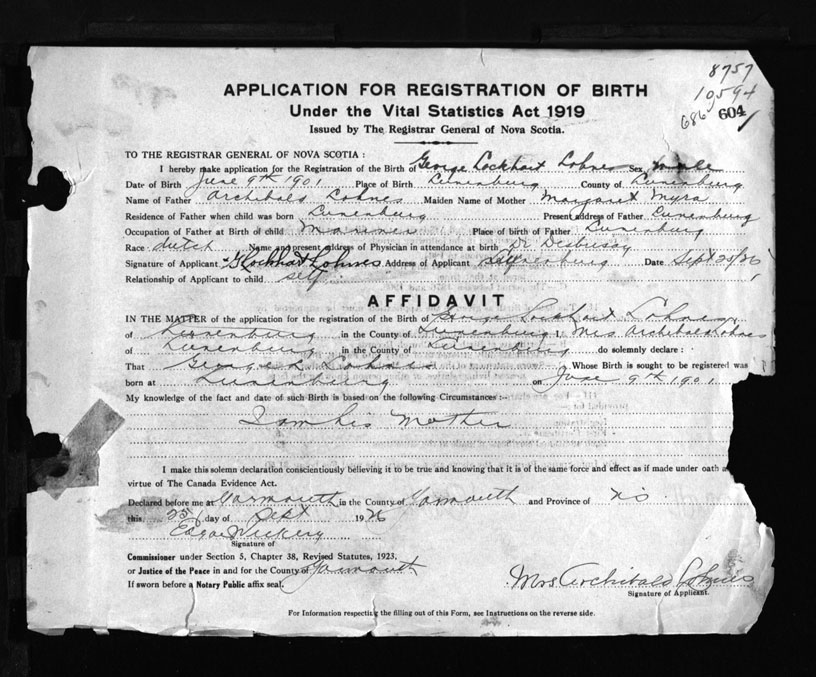 8757
10594
686
604
APPLICATION FOR REGISTRATION OF BIRTH
Under the Vital Statistics Act 1919
Issued by The Registrar General of Nova Scotia.
TO THE REGISTRAR GENERAL OF NOVA SCOTIA :
I hereby make application for the Registration of the Birth of George Lockhart Lohnes Sex male
Date of Birth June 9th 1901 Place of Birth Lunenburg County of Lunenburg
Name of Father Archibald Lohnes Maiden Name of Mother Margaret Myra
Residence of Father when child was born Lunenburg Present address of Father Lunenburg
Occupation of Father at Birth of child Mariner Place of birth of Father Lunenburg
Race dutch Name and present address of Physician in attendance at birth Dr Desbrisay
Signature of Applicant G Lockhart Lohnes Address of Applicant Lunenburg Date Sept 25/26
Relationship of Applicant to child self
AFFIDAVIT
IN THE MATTER of the application for the registration of the Birth of George Lockhart Lohnes
of Lunenburg in the County of Lunenburg I, Mrs Archibald Lohnes
of Lunenburg in the County of Lunenburg do solemnly declare :
That George L Lohnes Whose Birth is sought to be registered was
born at Lunenburg on June 9th 1901
My knowledge of the fact and date of such Birth is based on the following Circumstances :-
I am his Mother
I make this solemn declaration conscientiously believing it to be true and knowing that it is of the same force and effect as if made under oath
virtue of The Canada Evidence Act.
Declared before me at Yarmouth in the County of Yarmouth and Province of NS
this day of Sept 1926
Signature of
Commissioner under Section 5, Chapter 38, Revised Statutes, 1923,
or Justice of the Peace in and for the County of Yarmouth
If sworn before a Notary Public affix seal.
Mrs Archibald Lohnes
Signature of Applicant.
For Information respecting the filling out of this Form, see Instructions on the reverse side.